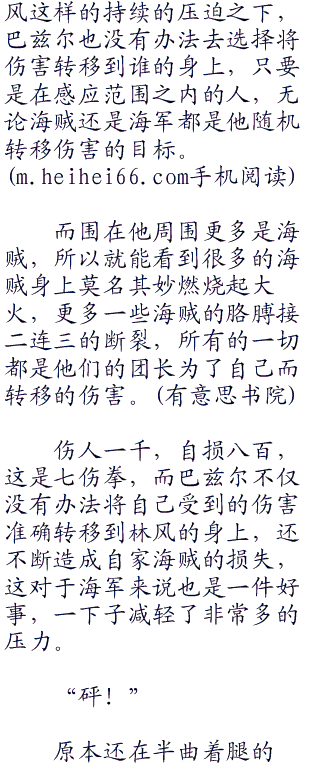 风这样的持续的压迫之下，
巴兹尔也没有办法去选择将
伤害转移到谁的身上，只要
是在感应范围之内的人，无
论海贼还是海军都是他随机
转移伤害的目标。
(m.heihei66.com手机阅读)
而围在他周围更多是海
贼，所以就能看到很多的海
贼身上莫名其妙燃烧起大
火，更多一些海贼的胳膊接
二连三的断裂，所有的一切
都是他们的团长为了自己而
转移的伤害。(有意思书院)
伤人一千，自损八百，
这是七伤拳，而巴兹尔不仅
没有办法将自己受到的伤害
准确转移到林风的身上，还
不断造成自家海贼的损失，
这对于海军来说也是一件好
事，一下子减轻了非常多的
压力。
“砰！”
原本还在半曲着腿的